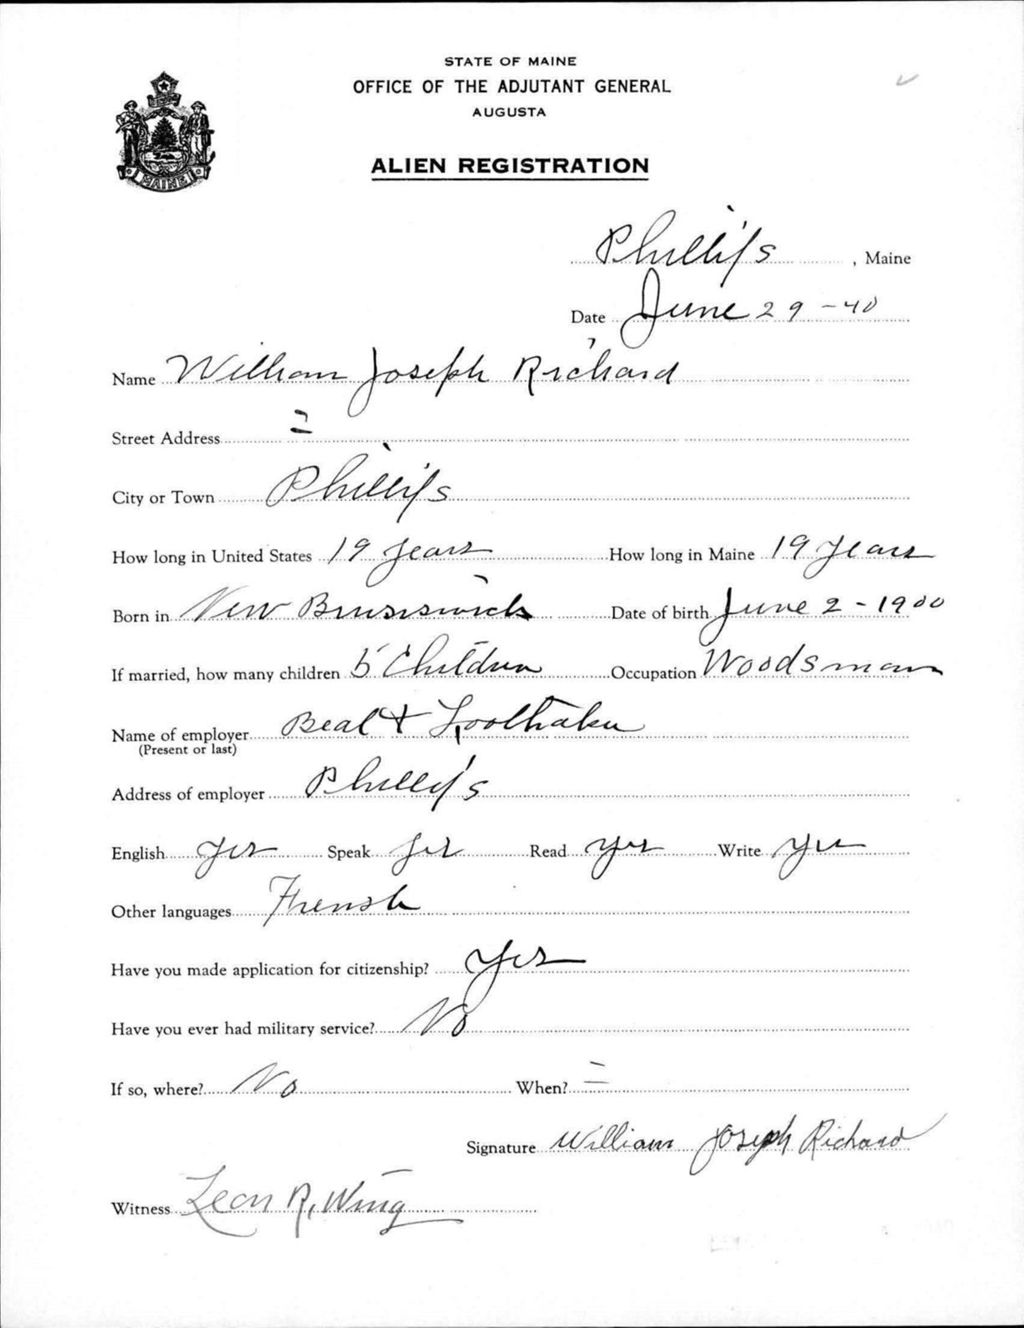 STATE OF MAINE
OFFICE OF THE ADJUTANT GENERAL
AUGUSTA
MAINE
ALIEN REGISTRATION
Phillips, Maine
Date June 29-40
Name William Joseph Richard
Street Address =
City or Town Phillips
How long in United States 19 years How long in Maine 19 years
Born in New Brunswick Date of birth June 2-1900
If married, how many children 5 Children Occupation Woodsman
Name of employer Beal &
(Present or last)
Address of employer Phillips
English yes Speak yes Read yes Write yes
Other languages Frensh
Have you made application for citizenship? yes
Have you ever had military service? No
If so, where? No When? =
Signature William Joseph Richard
Witness Leon R. Wing